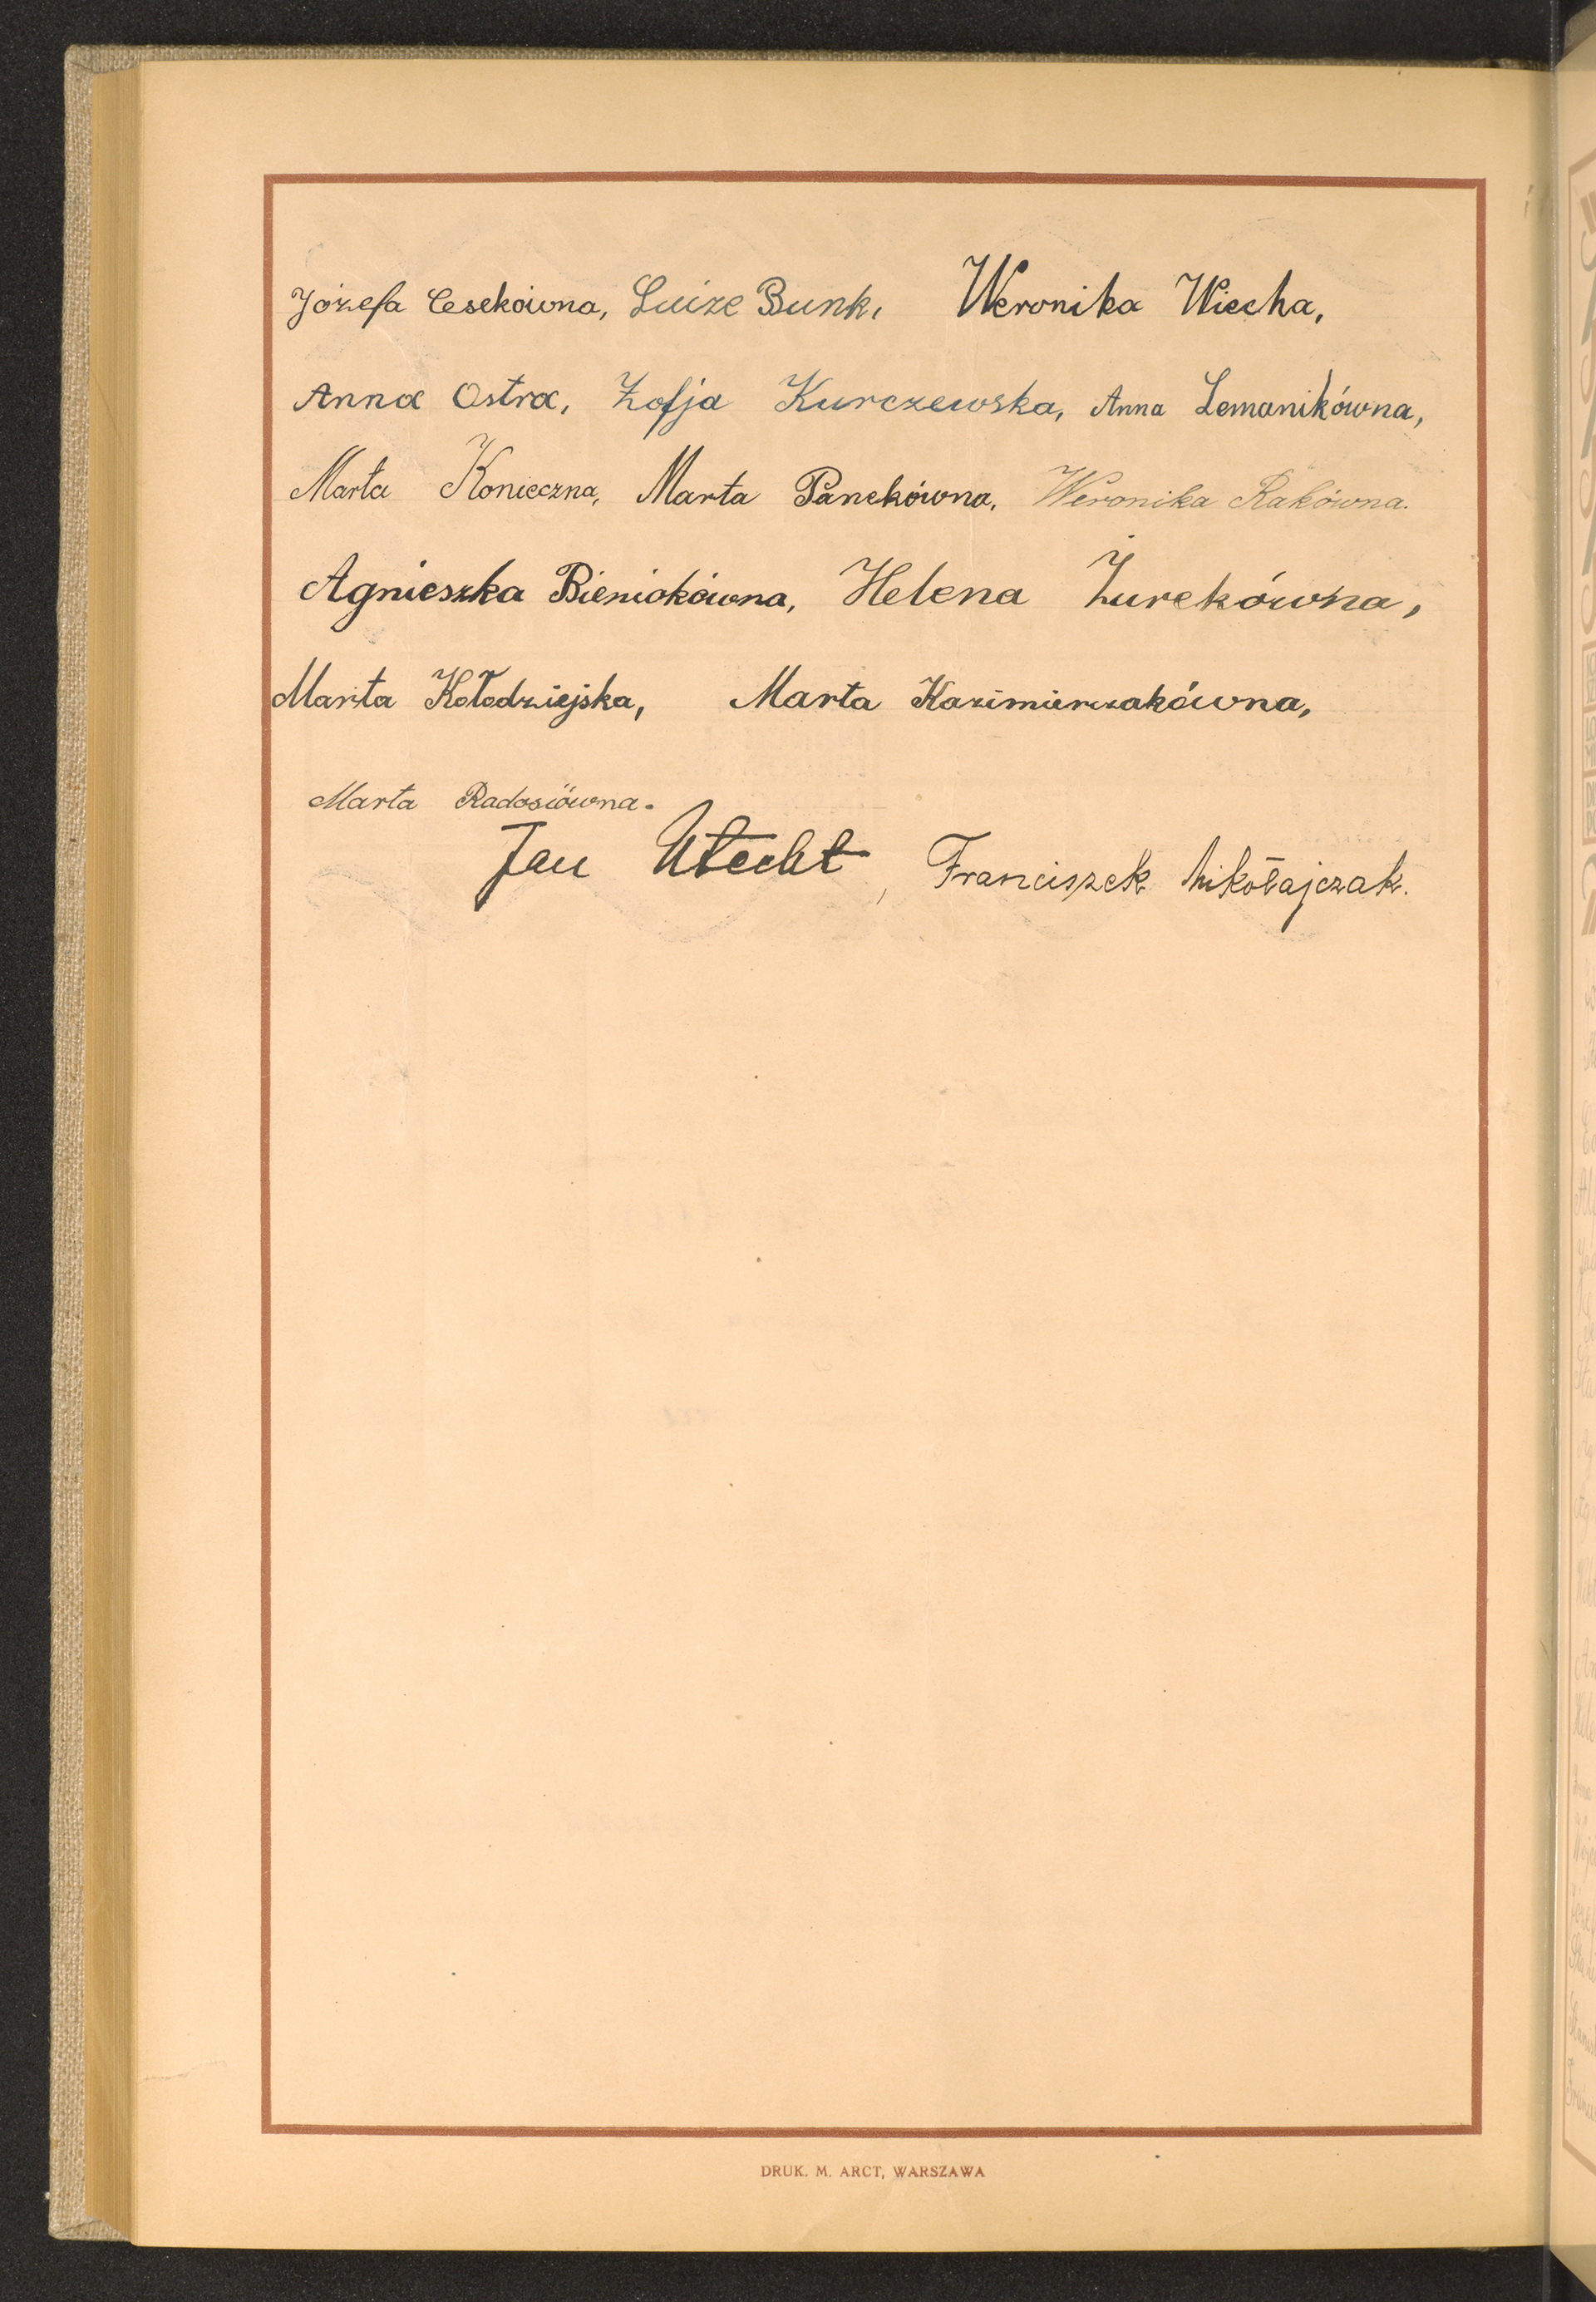 Józefa Cesekówna, Luize Bunk, Weronika Wiecha,
Anna Ostra, Zofja Kurczewska, Anna Lemanikówna,
Marta Konieczna, Marta Panekówna, Weronika Rakówna.
Agnieszka Bieniakówna, Helena Żurekówna,
Marta Kołodziejska, Marta Kazimierczakówna,
Marta Radosiówna.
Jan Utecht, Franciszek Mikołajczak.
DRUK. M. ARCT, WARSZAWA